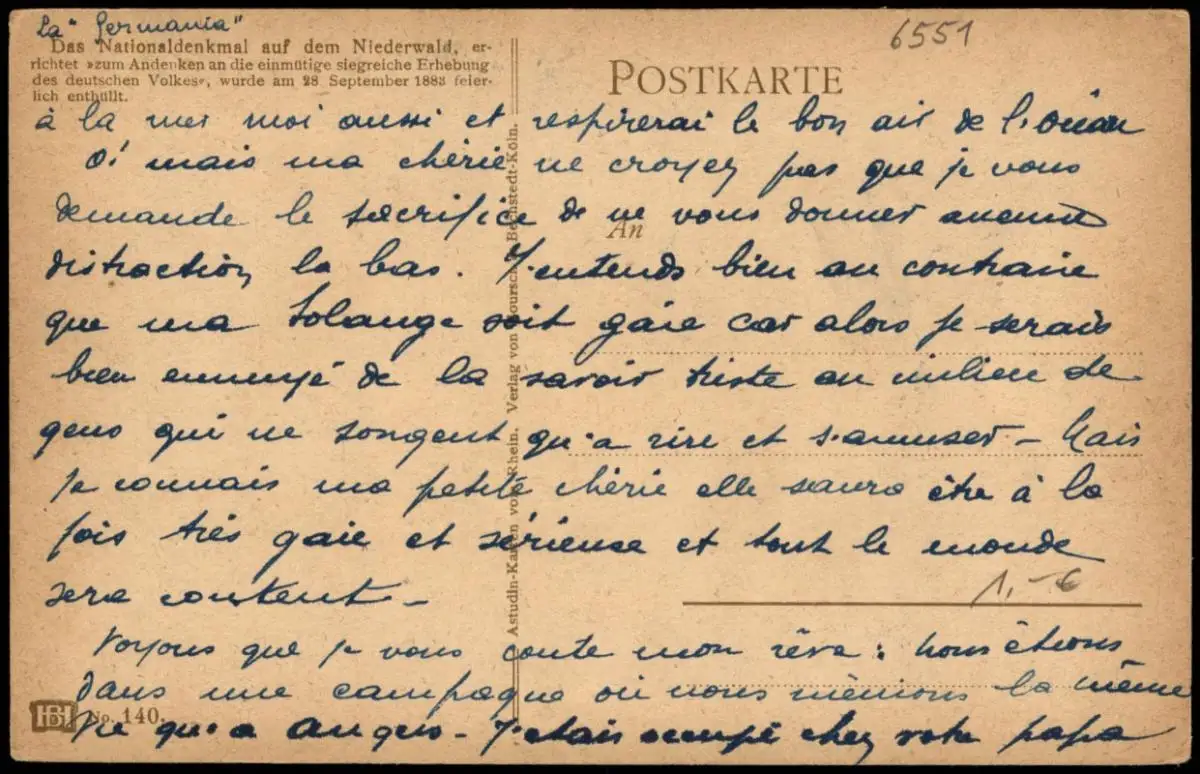 La "Germania"
Das Nationaldenkmal auf dem Niederwald, er-
richtet »zum Andenken an die einmütige siegreiche Erhebung
des deutschen Volkes«, wurde am 28 September 1883 feier-
lich enthüllt.
6551
POSTKARTE
à la mer moi aussi et respirerai le bon air de l'Océan
O! mais ma chérie ne croyez pas que je vous
demande le sacrifice de ne vous donner aucune
distraction la bas. J'entends bien au contraire
que ma Solange soit gaie car alors je serais
bien ennuyé de la savoir triste au milieu de
gens qui ne songent qu'a rire et s'amuser - Mais
je connais ma petite chérie elle saura être à la
fois très gaie et sérieuse et tout le monde
sera content -
Voyons que je vous conte mon rêve : Nous étions
dans une campagne où nous menions la même
vie qu'a Angers - J'etais occupé chez votre papa
An
1.- 6
Astudin-Karten vom Rhein. Verlag von Hoursch & Bechstedt-Köln.
HB No. 140.